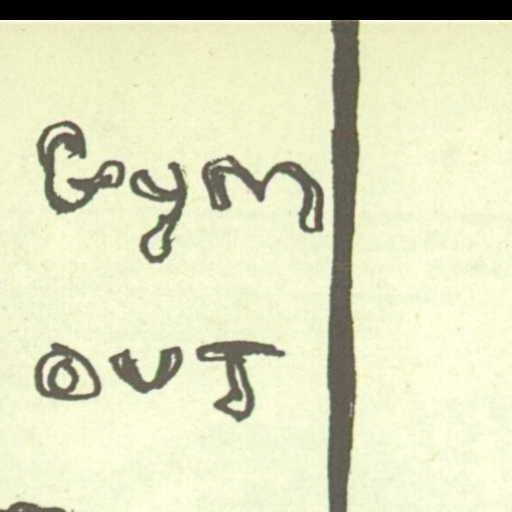 Gym
OUT